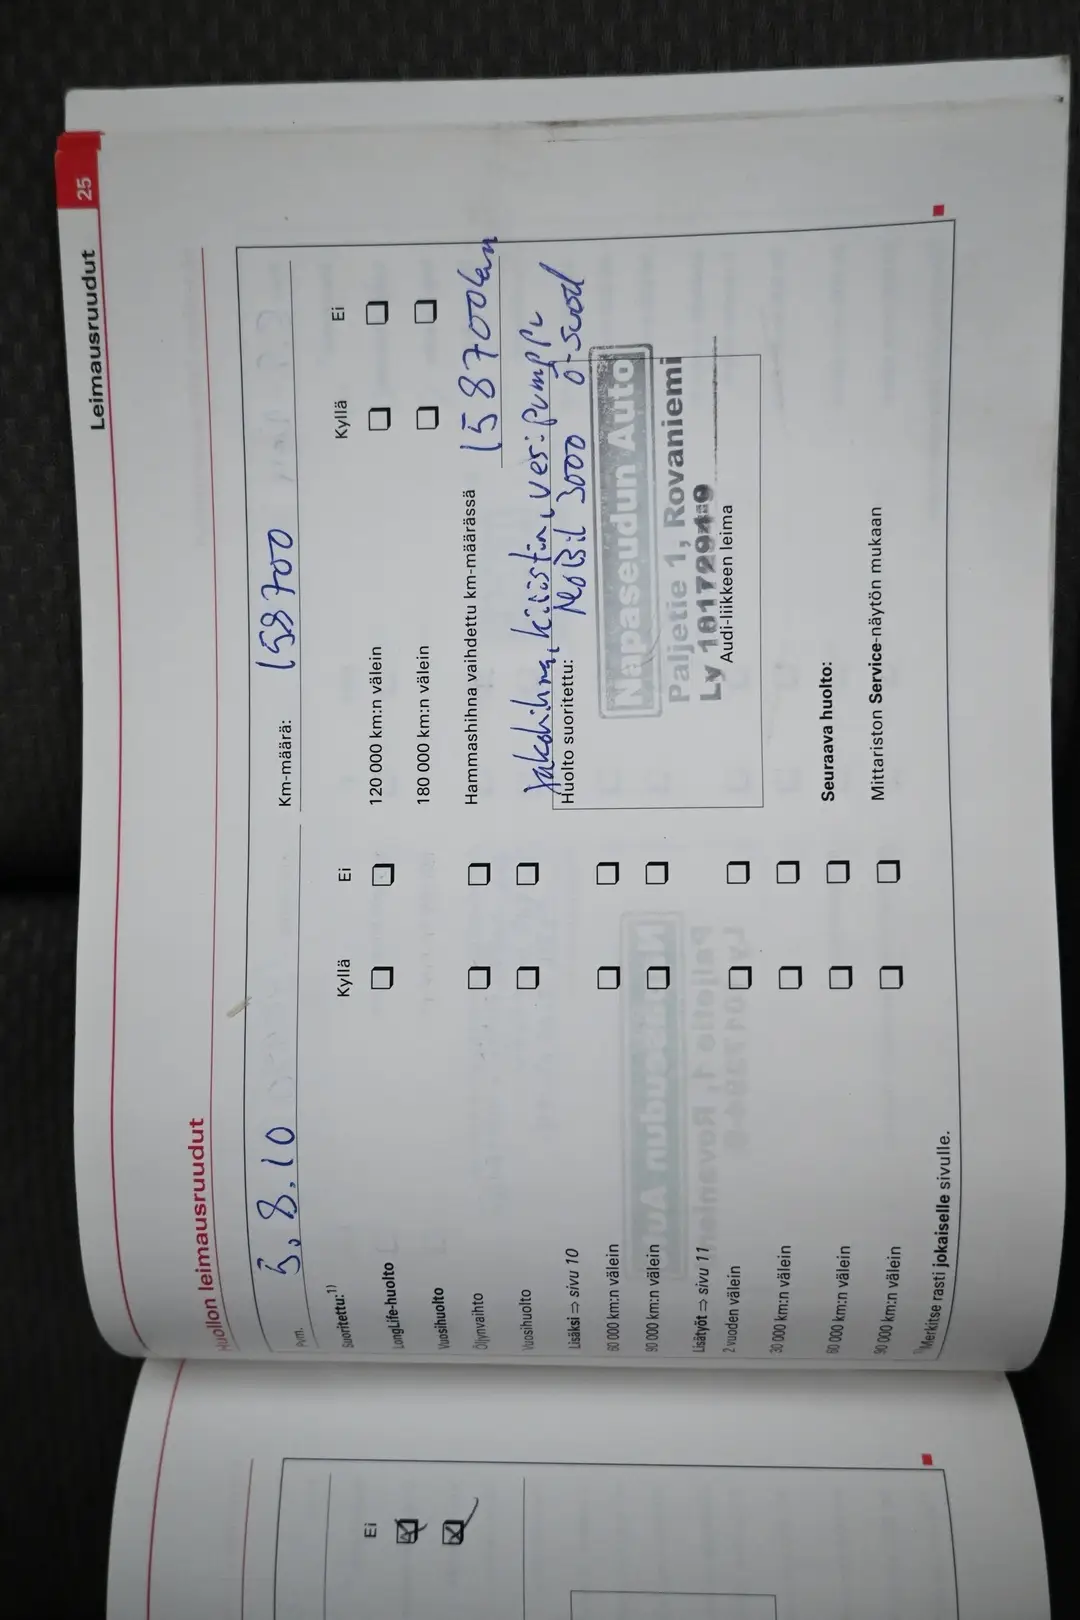 Leimausruudut 25
Huollon leimausruudut
Pvm. 5.8.10
Km-määrä: 158700
Suoritettu:1) Kyllä Ei
LongLife-huolto
Vuosihuolto
Öljynvaihto
Vuosihuolto
Lisäksi ⇒ sivu 10
60 000 km:n välein
90 000 km:n välein
Lisätyöt ⇒ sivu 11
2 vuoden välein
30 000 km:n välein
60 000 km:n välein
90 000 km:n välein
1)Merkitse rasti jokaiselle sivulle.
Kyllä Ei
120 000 km:n välein
180 000 km:n välein
Hammashihna vaihdettu km-määrässä 158700km
Jakohihna, kiristin, vesipumppu
Huolto suoritettu: MoBil 3000 ö-suod
Nappaseudun Auto
Paljetie 1, Rovaniemi
Ly
Audi-liikkeen leima
Seuraava huolto:
Mittariston Service-näytön mukaan
Ei